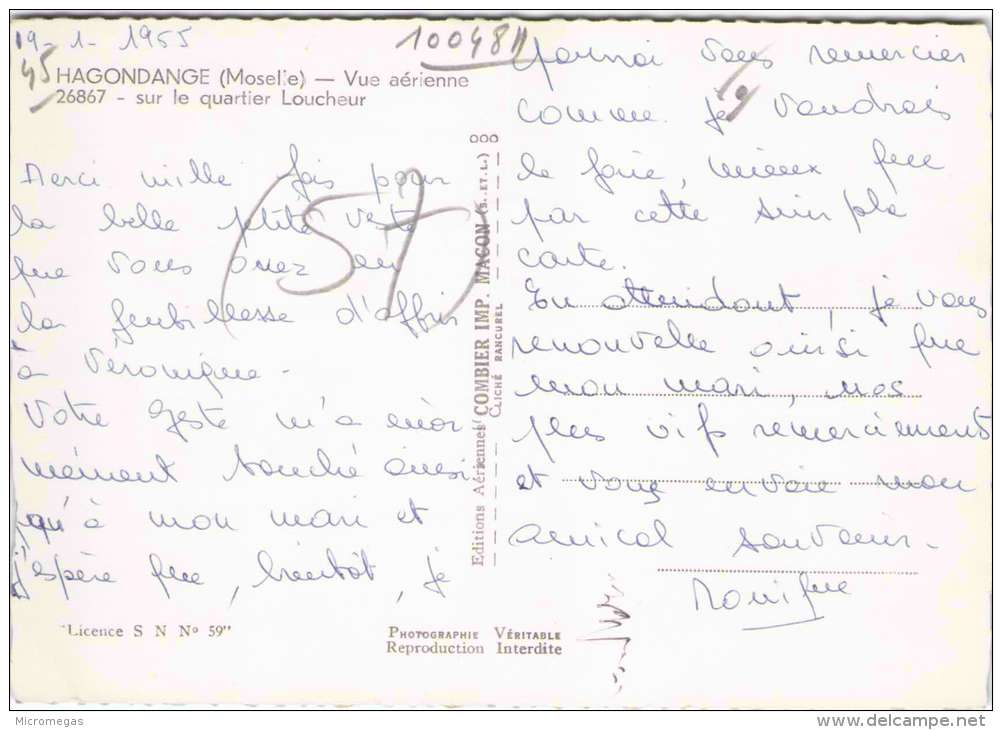 19-1-1955
45
10048
HAGONDANGE (Moselle) — Vue aérienne
26867 - sur le quartier Loucheur
Merci mille fois pour
la belle ptite veste
que vous avez eu
la gentillesse d'offrir
à Véronique-
Votre geste m'a énor
mément touché ainsi
qu'à mon mari et
j'espère que, bientôt, je
(57)
"Licence S N Nº 59"
PHOTOGRAPHIE VÉRITABLE
Reproduction Interdite
Editions Aériennes COMBIER IMP. MACON (S.-ET-L.)
CLICHÉ RANCUREL
000
pourrai vous remercier
comme je voudrais
le faire, mieux que
par cette simple
carte.
En attendant, je vous
renouvelle ainsi que
mon mari, nos
plus vifs remerciements
et vous envoie mon
amical souvenir-
Monique
Micromegas
delcampe.net